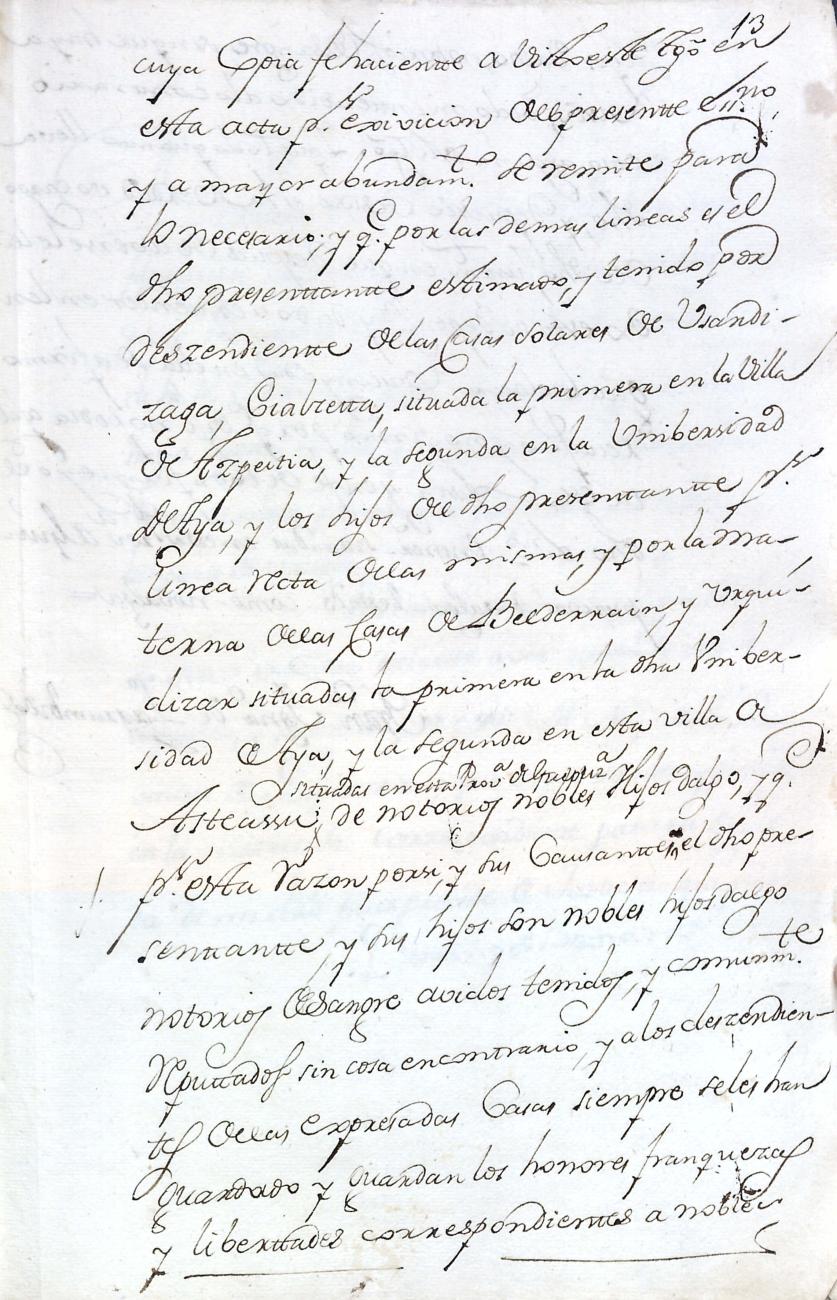 13
cuya Copia fehaciente a visto este tgo. en
esta acta pr. exivicion del presentte Essno.
y a mayor abundamte. se remite para
lo necesario; y q. por las demas lineas es el
dho presenttantte estimado, y tenido por
deszendientte de las Casas solares de Usandi-
zaga, Eialzetta, situada la primera en la Villa
de Azpeitia, y la segunda en la Unibersidad
de Aya, y los hijos de dho presenttantte pr.
linea recta de las mismas, y por la Ma-
terna de las Casas de Belderrain, y Urqui-
dizar situadas la primera en la dha Uniber-
sidad de Aya, y la segunda en esta villa de
situadas en esta Prova. de Guipuza. y
Asteassu; de notorios nobles Hijos dalgo, y q.
pr. esta razon por si, y sus Causanttes, el dho pre-
senttantte, y sus hijos son nobles hijosdalgo
notorios de sangre avidos tenidos, y comunmte.
Reputtados sin cosa en contrario, y a los deszendien-
tes de las expresadas Casas siempre se les han
guardado y guardan los honores franquezas
y liberttades correspondienttes a nobles